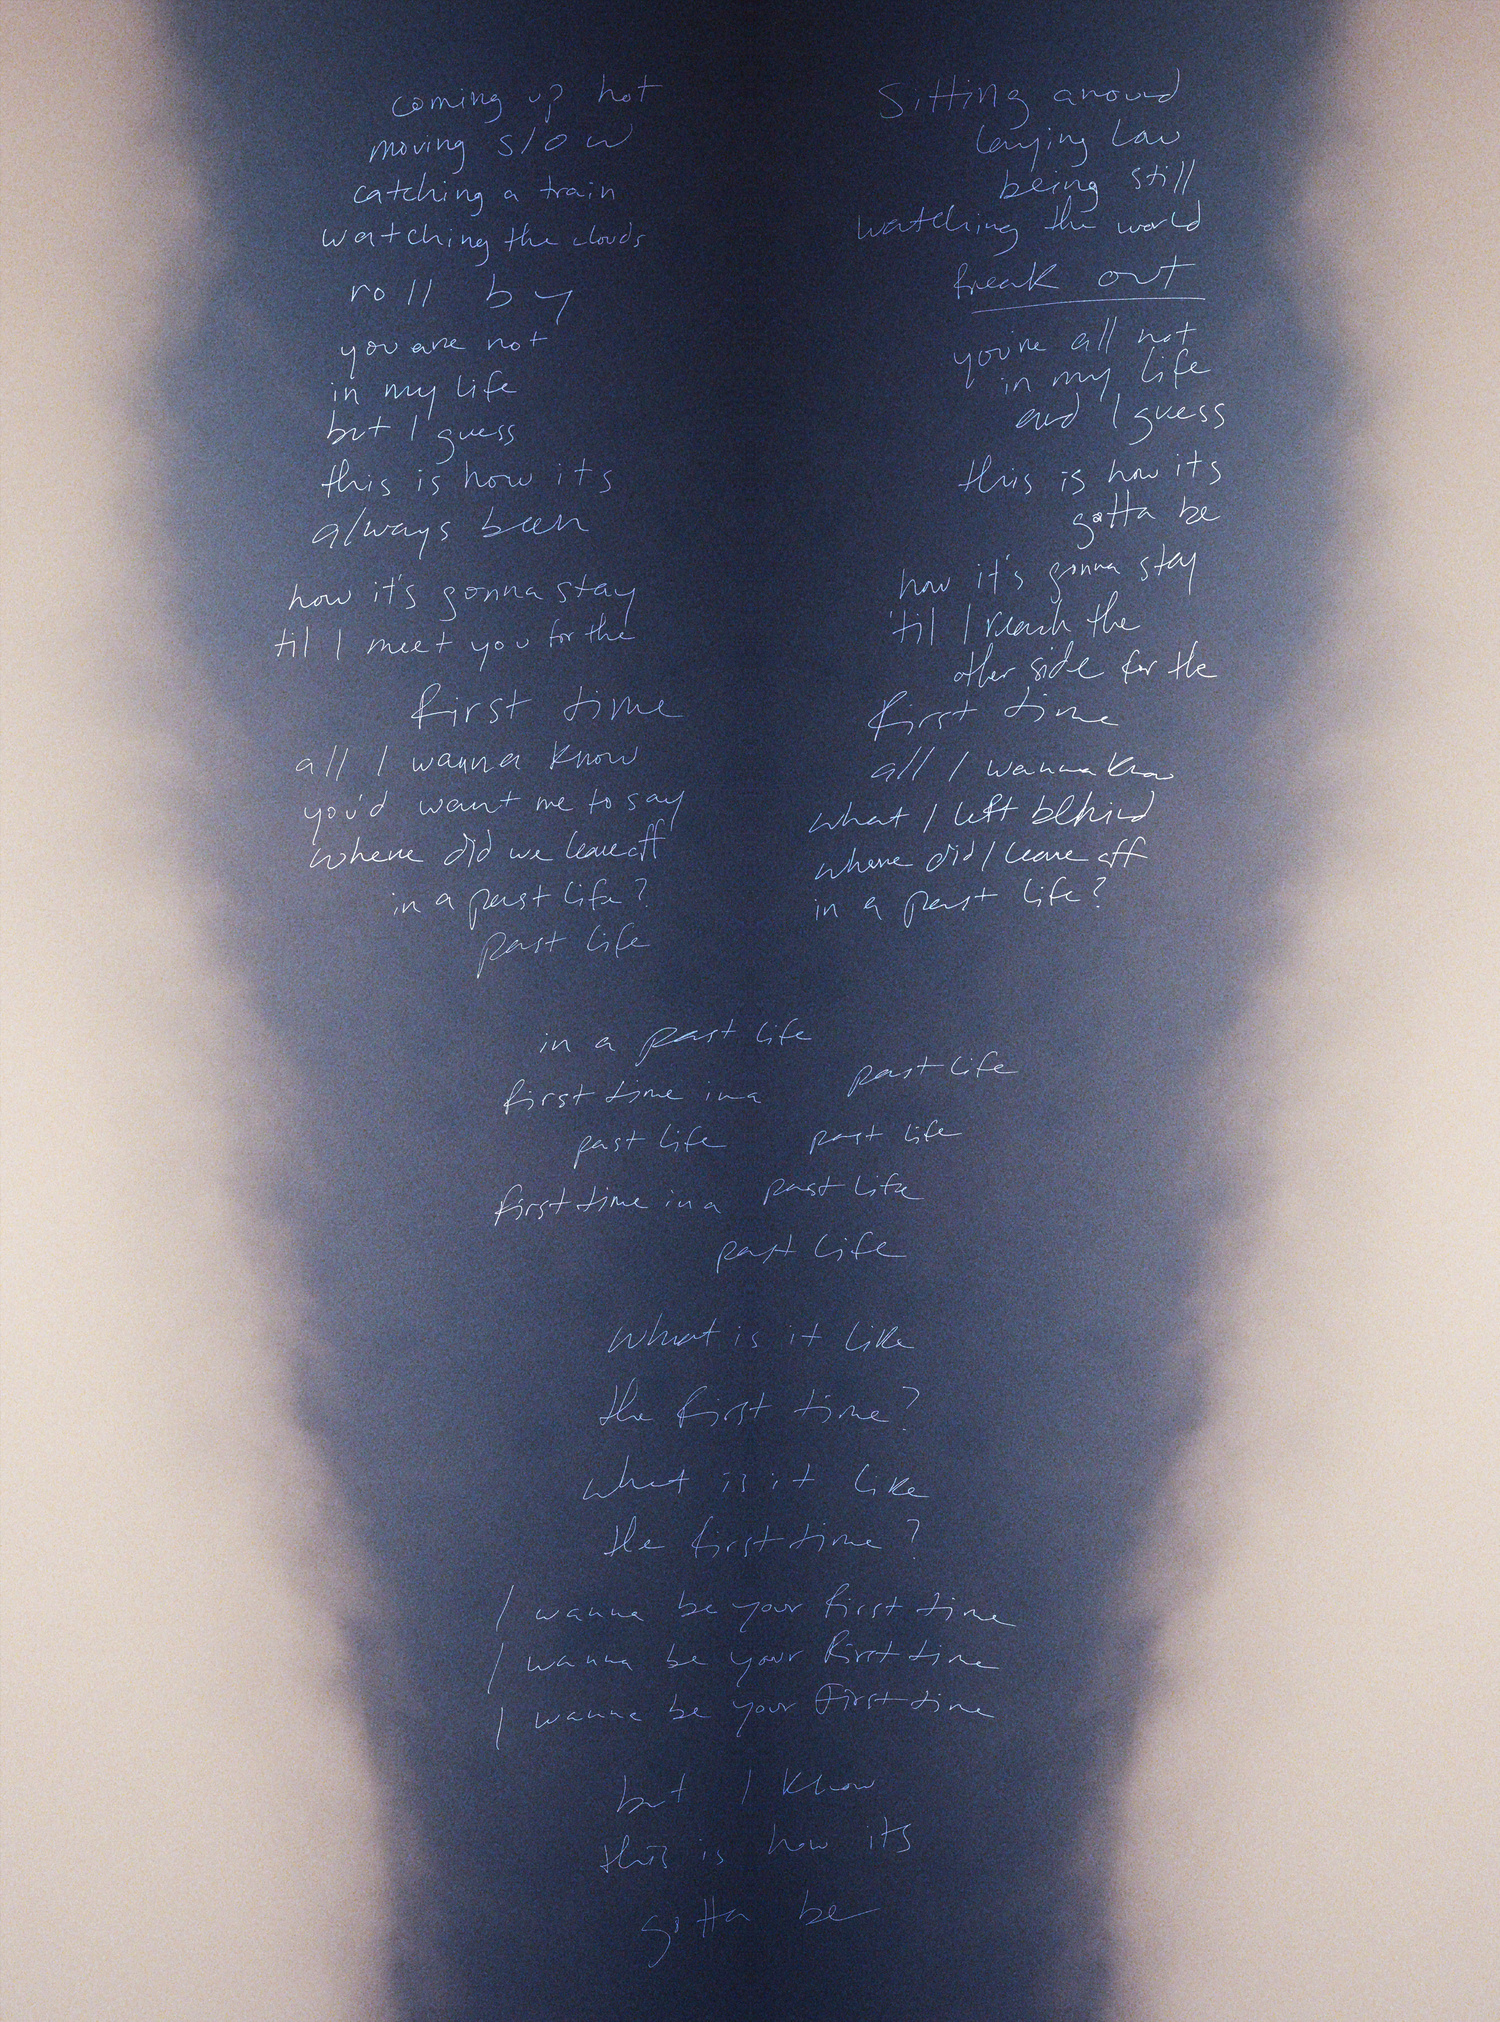 coming up hot
moving slow
catching a train
watching the clouds
roll by
you are not
in my life
but I guess
this is how its
always been
how it's gonna stay
til I meet you for the
first time
all I wanna know
you'd want me to say
where did we leave off
in a past life?
past life
Sitting around
laying low
being still
watching the world
freak out
you're all not
in my life
and I guess
this is how its
gotta be
how it's gonna stay
'til I reach the
other side for the
first time
all I wanna know
what I left behind
where did I leave off
in a past life?
in a past life
past life
first time in a
past life past life
first time in a past life
past life
what is it like
the first time?
what is it like
the first time?
I wanna be your first time
I wanna be your first time
I wanna be your first time
but I know
this is how its
gotta be